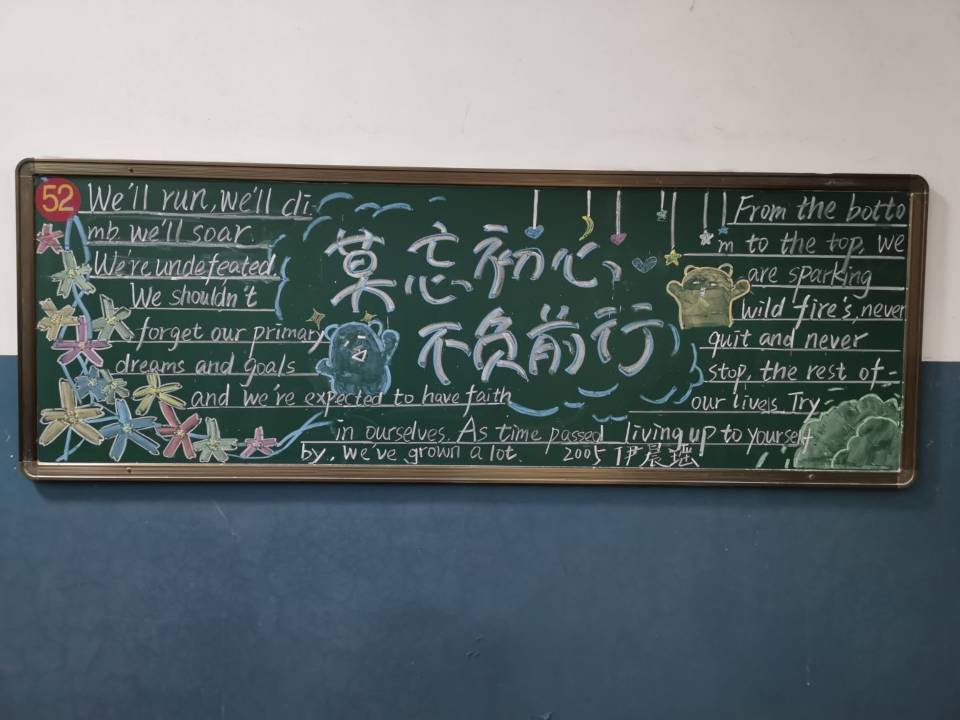 52
We'll run, we'll cli
mb we'll soar.
We're undefeated.
We shouldn't
forget our primary
dreams and goals
and we're expected to have faith
in ourselves. As time passed
by, we've grown a lot.
莫忘初心、
不负前行
From the botto
m to the top, we
are sparking
wild fire's, never
quit and never
stop, the rest of
our lives. Try
living up to yourself.
2005 伊晨瑶